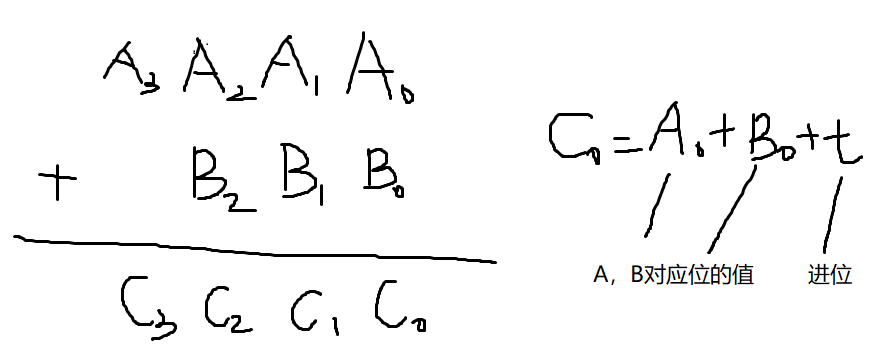 A₃ A₂ A₁ A₀
+ B₂ B₁ B₀
C₃ C₂ C₁ C₀
C₀=A₀+B₀+t
A，B对应位的值
进位